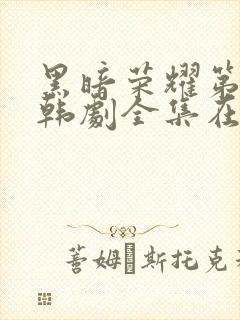 黑暗荣耀第
韩剧全集在
善姆·斯托克